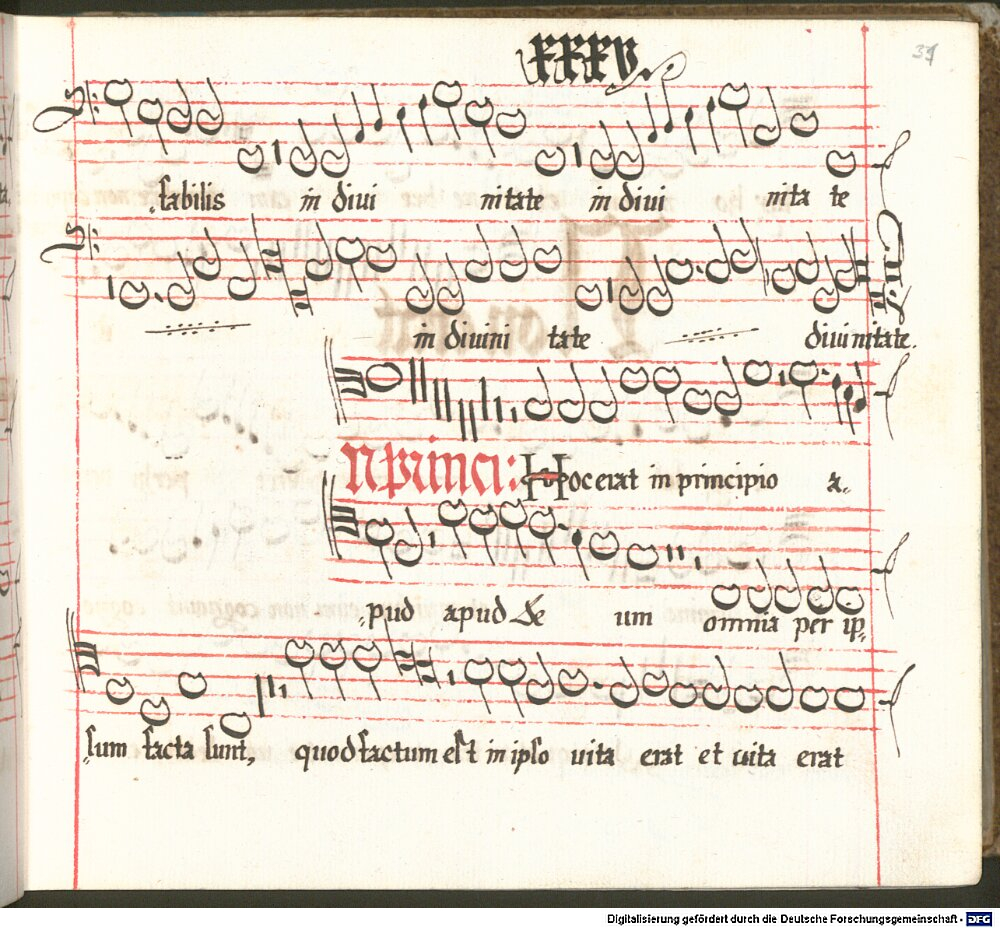 XXXV.
fabilis in divi nitate in divi nita te
in divini tate divinitate.
N princi: Hoc erat in principio a-
pud apud de um omnia per ip-
sum facta sunt, quod factum est in ipso vita erat et vita erat
Digitalisierung gefördert durch die Deutsche Forschungsgemeinschaft - DFG